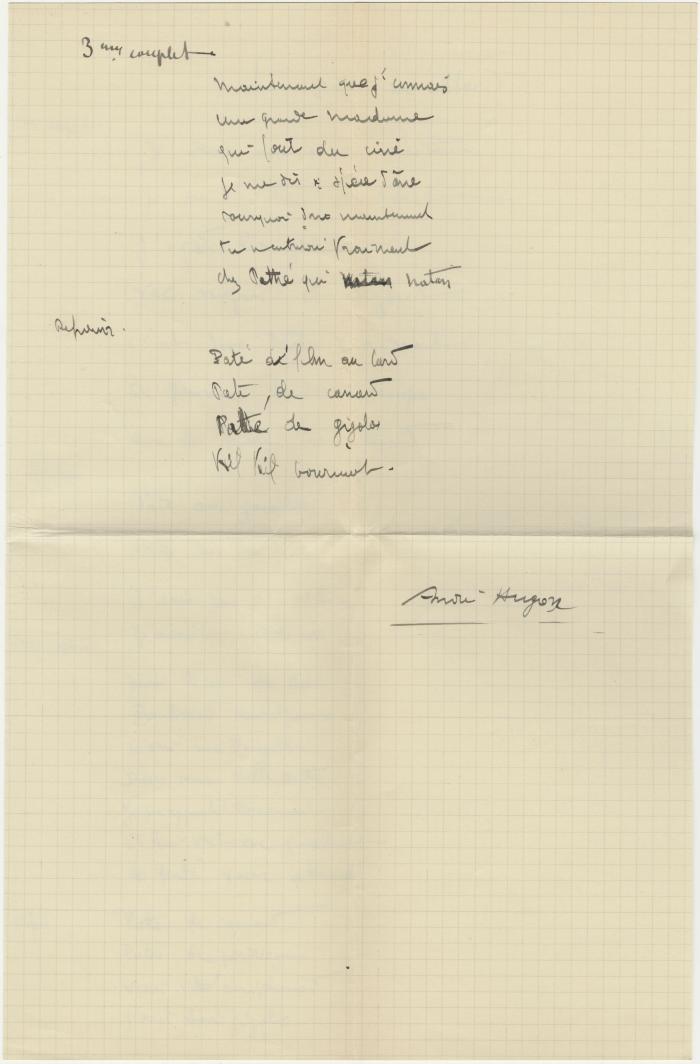 3ème couplet
Maintenant que j'connais
une grande madame
qui fait du ciné
Je me dis espèce d'âne
Pourquoi donc maintenant
tu vraiment
chez Pathé qui natan
Refrain.
Paté de film au lard
Paté, de canard
Pathé de gigolos
Kil Kil
André Hugon